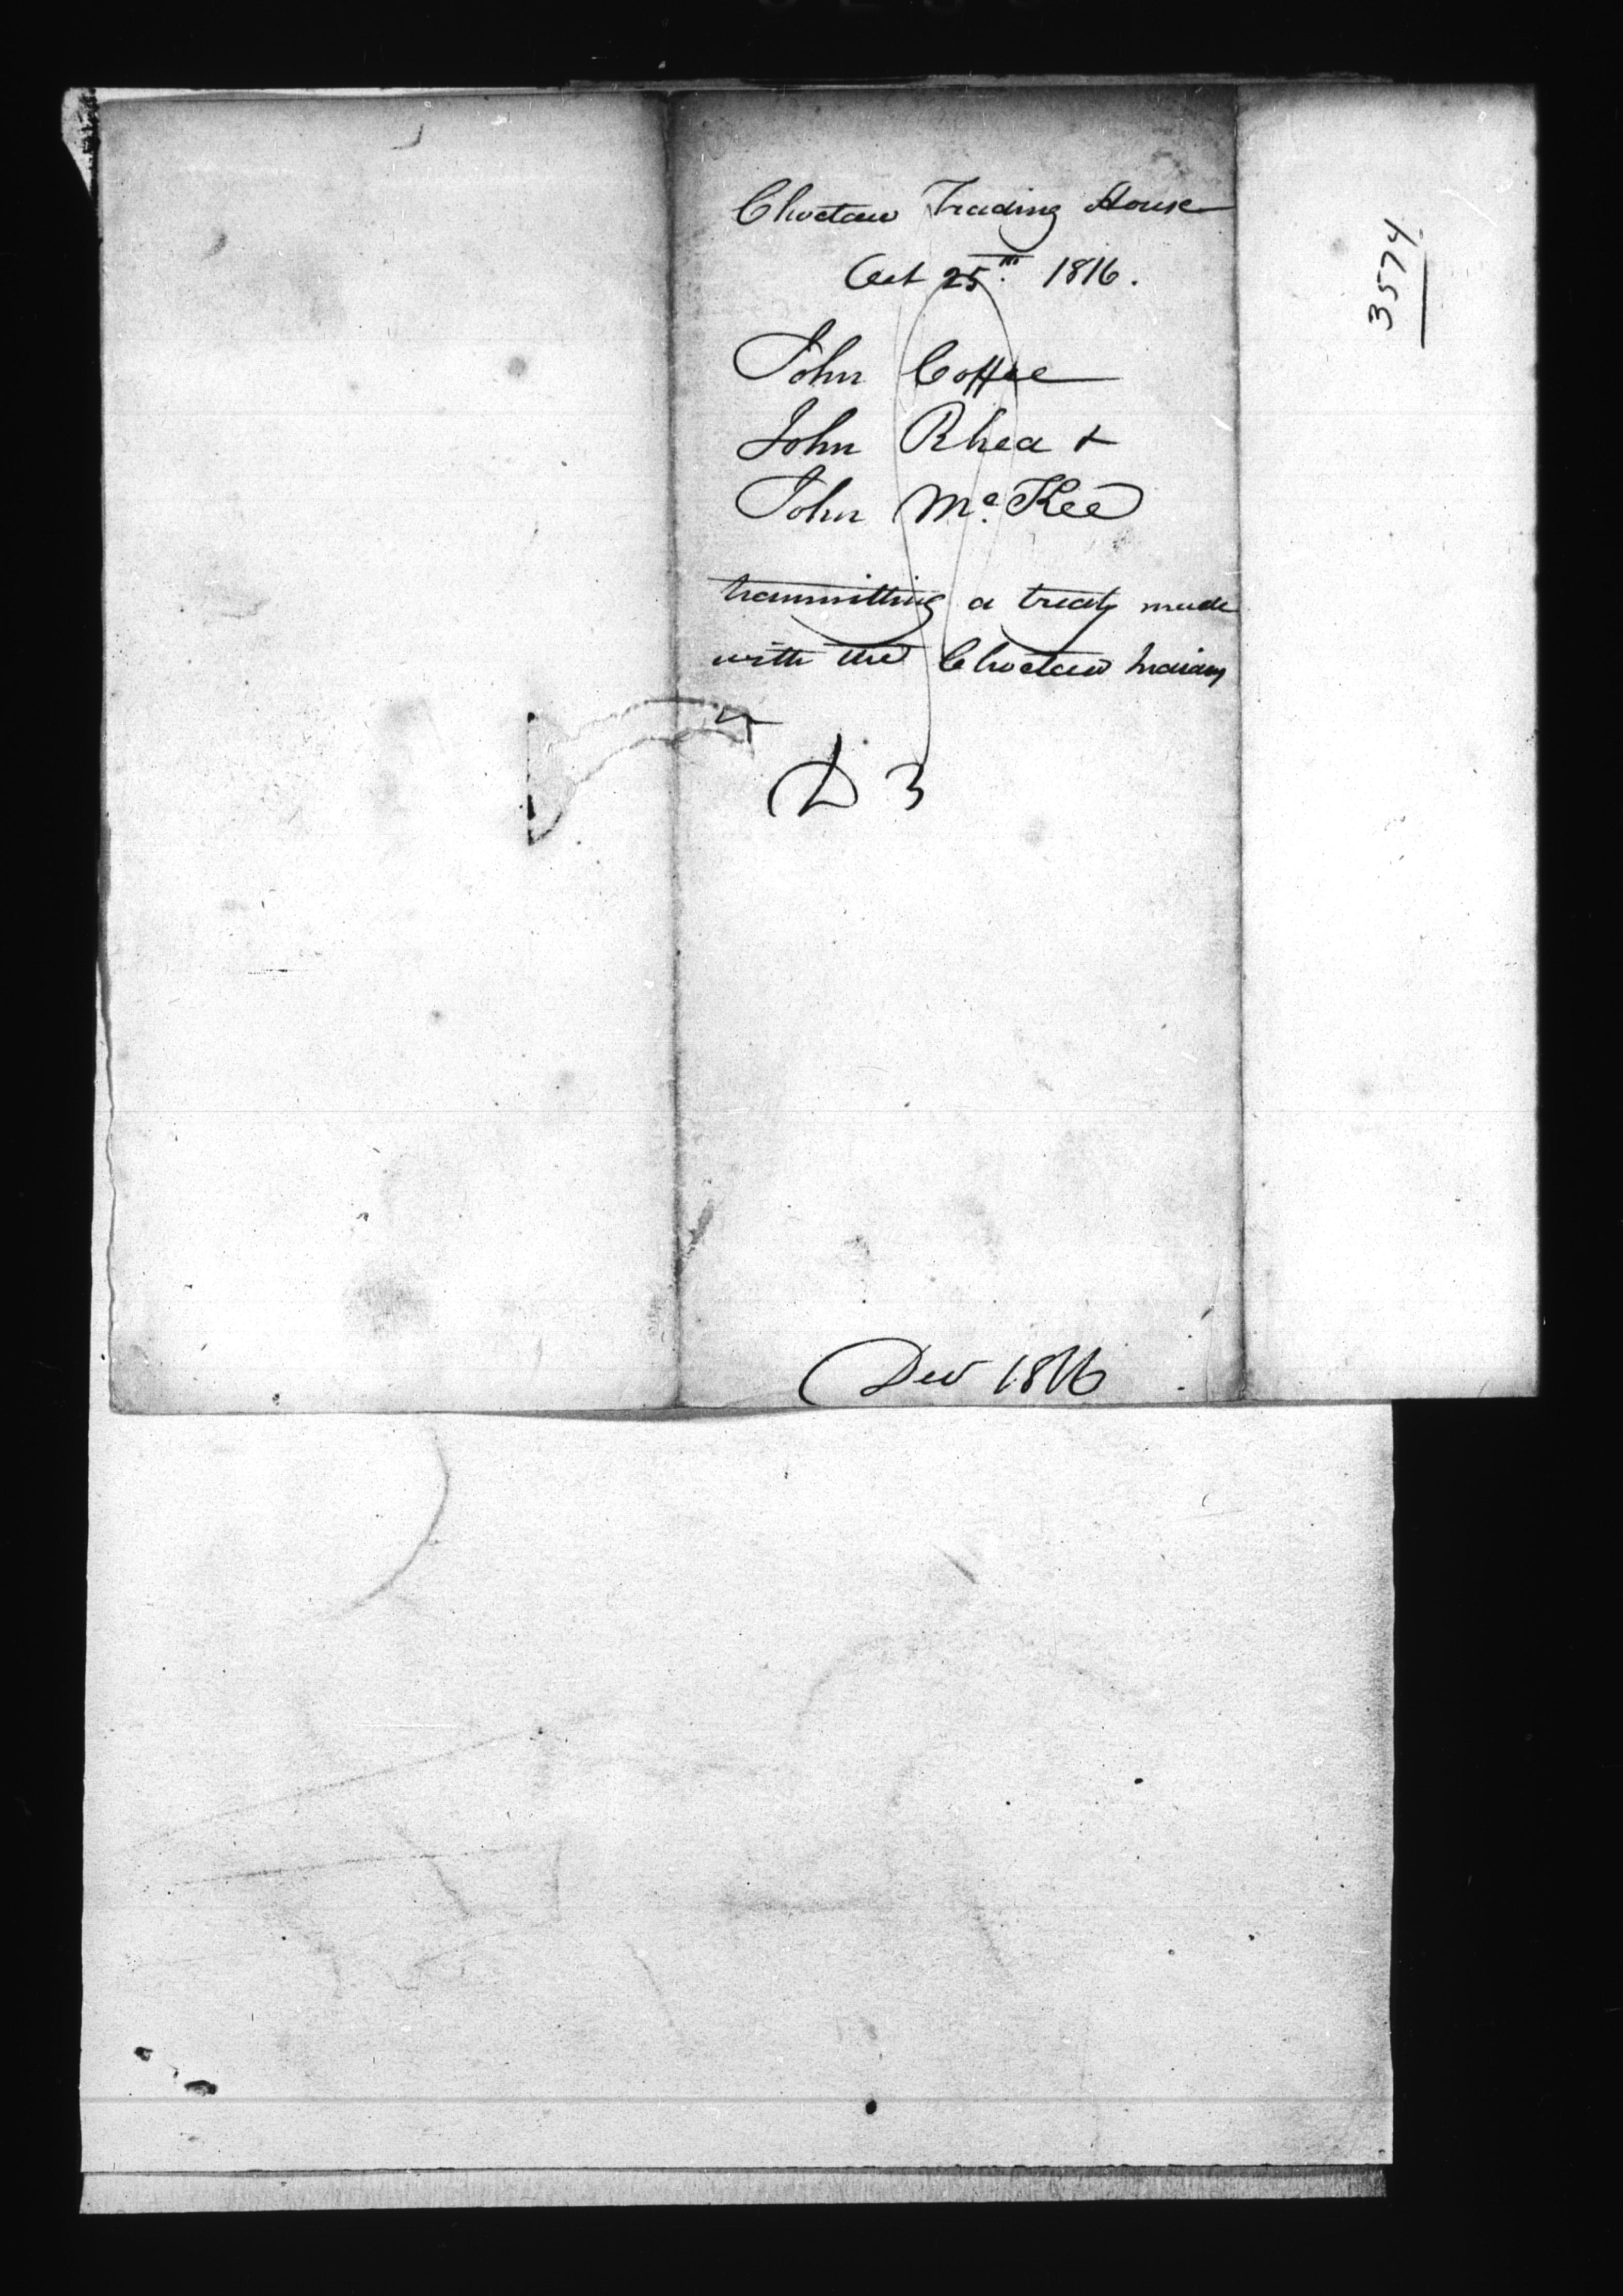 Choctaw Trading House
Oct 25th. 1816.
John Coffee
John Rhea &
John McKee
transmitting a treaty made
with the Choctaw Indians
D 3
Dec 1816
3574